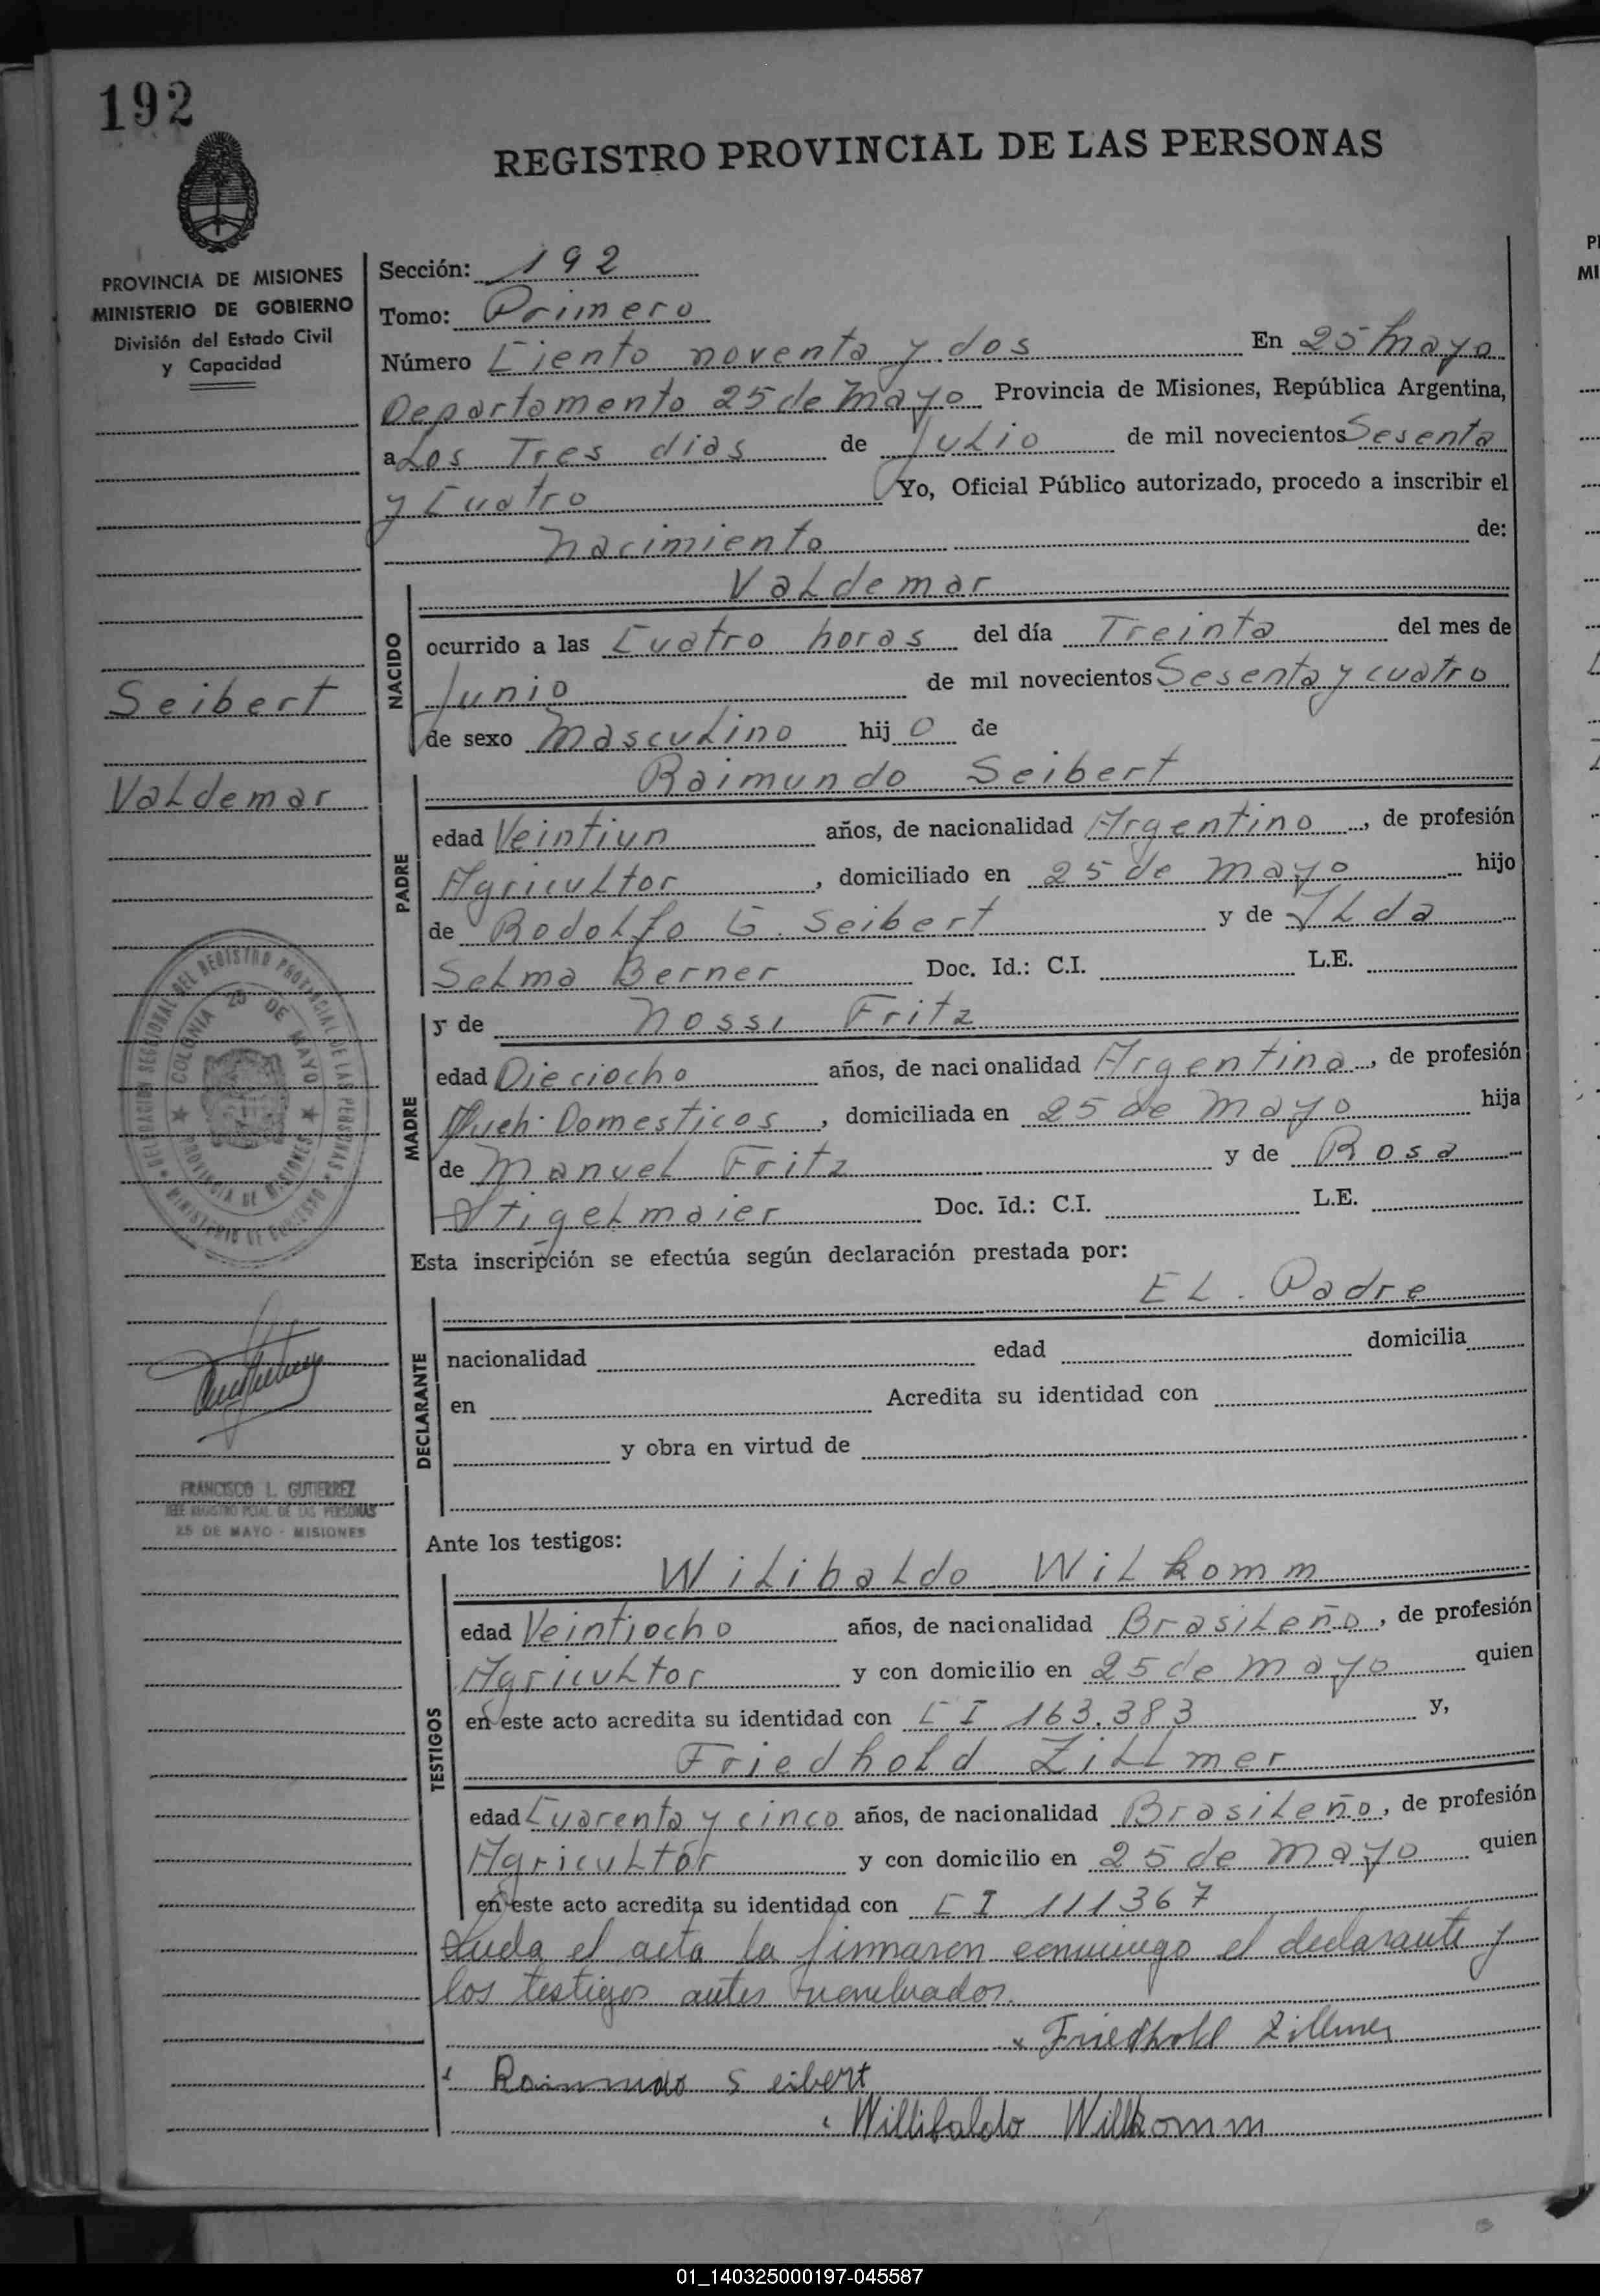 192
REGISTRO PROVINCIAL DE LAS PERSONAS
PROVINCIA DE MISIONES
MINISTERIO DE GOBIERNO
División del Estado Civil
y Capacidad
Seibert
Valdemar
DELEGACION SECCIONAL DEL REGISTRO PROVINCIAL DE LAS PERSONAS
★ COLONIA 25 DE MAYO ★
PROVINCIA DE MISIONES
★ MINISTERIO DE GOBIERNO ★
FRANCISCO L. GUTIERREZ
JEFE REGISTRO PCIAL. DE LAS PERSONAS
25 DE MAYO - MISIONES
Sección: 192
Tomo: Primero
Número Ciento noventa y dos En 25 Mayo
Departamento 25 de Mayo Provincia de Misiones, República Argentina,
a Los Tres dias de Julio de mil novecientos Sesenta
y Cuatro Yo, Oficial Público autorizado, procedo a inscribir el
Nacimiento de:
NACIDO
Valdemar
ocurrido a las Cuatro horas del día Treinta del mes de
Junio de mil novecientos Sesenta y cuatro
de sexo Masculino hij o de
PADRE
Raimundo Seibert
edad Veintiun años, de nacionalidad Argentino, de profesión
Agricultor, domiciliado en 25 de Mayo hijo
de Rodolfo G. Seibert y de Ilda
Selma Berner Doc. Id.: C.I. L.E.
MADRE
y de Nossi Fritz
edad Dieciocho años, de naci onalidad Argentina, de profesión
Queh. Domesticos, domiciliada en 25 de Mayo hija
de Manuel Fritz y de Rosa
Stigelmaier Doc. Id.: C.I. L.E.
Esta inscripción se efectúa según declaración prestada por:
DECLARANTE
EL. Padre
nacionalidad edad domicilia
en Acredita su identidad con
y obra en virtud de
Ante los testigos:
TESTIGOS
Wilibaldo Wilkomm
edad Veintiocho años, de nacionalidad Brasileño, de profesión
Agricultor y con domicilio en 25 de Mayo quien
en este acto acredita su identidad con CI 163.383 y,
Friedhold Zillmer
edad Cuarenta y cinco años, de nacionalidad Brasileño, de profesión
Agricultor y con domicilio en 25 de Mayo quien
en este acto acredita su identidad con CI 111367
Leida el acta la firmaron conmigo el declarante y
los testigos antes nombrados.
x Friedhold Zillmer
Raimundo Seibert
Willibaldo Willkomm
01_140325000197-045587